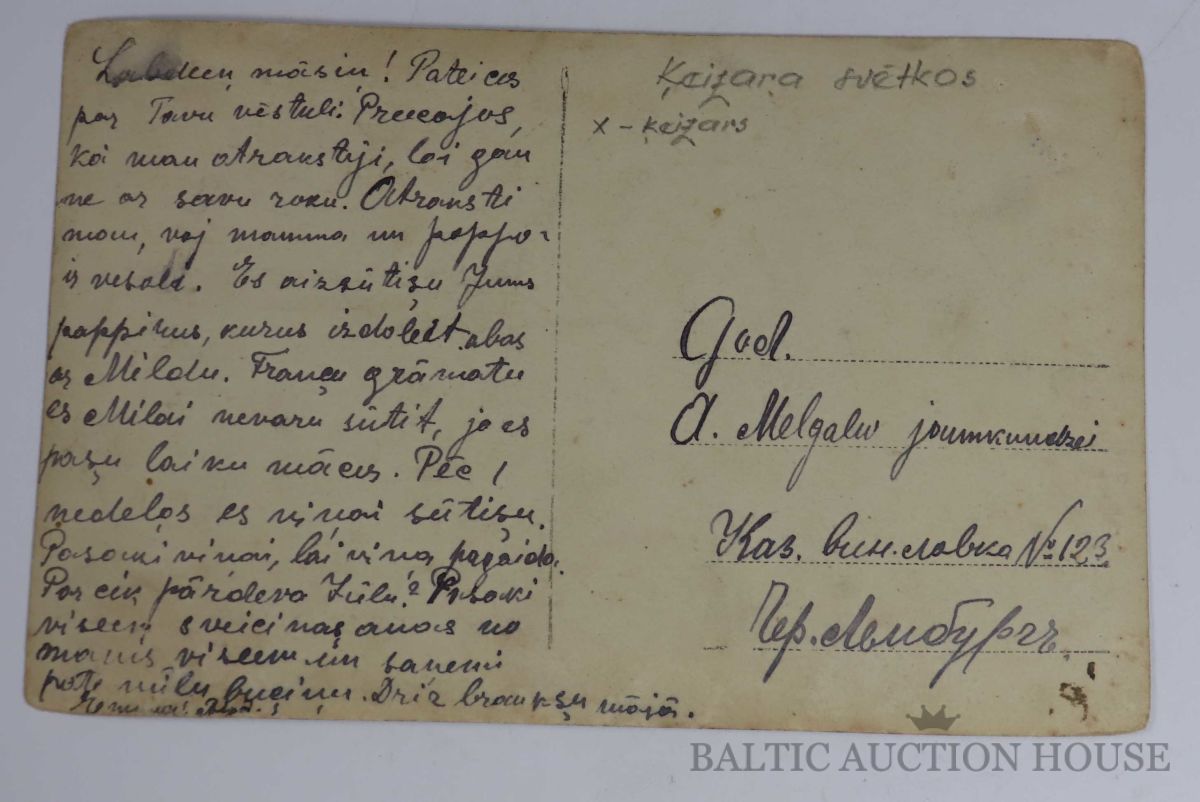 māsiņ! Pateicos
par Tavu vēstuli. Priecajos,
ka man atrakstiji, lai gan
ne ar savu roku. Atraksti
man, vaj mamma un pappa
ir veseli. Es aizsūtīšu Jums
pappirus, kurus izdalīt abas
ar Mildu. Franču grāmatu
es Mildai nevaru sūtīt, jo es
pašu laiku mācos. Pēc 1
nedeļas es viņai sūtīšu.
Pasaki viņai, lai viņa pagaida.
Par cik pārdeva Zīlu? Pasaki
visiem sveicinašanas no
manis visiem un saņemi
pate mīļu buciņu. Drīz braukšu mājā.
Ķeizara svētkos
x - ķeizars
God.
A. Melgalw jaunkundzei
Каз. вин. лавка № 123
Чер. Лембургъ.
BALTIC AUCTION HOUSE